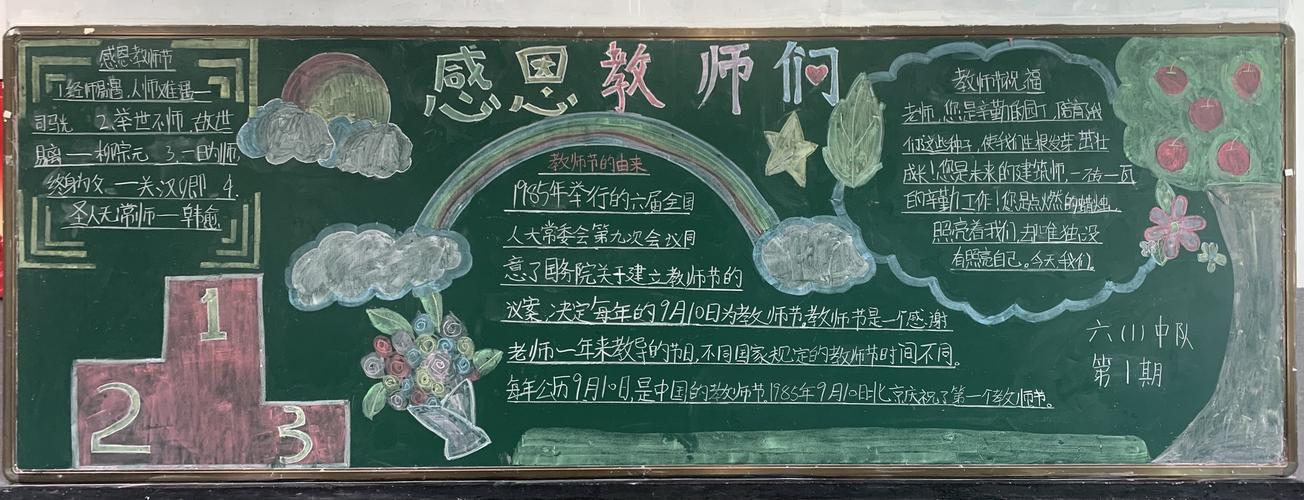 感恩教师们
感恩教师节
1.经师易遇,人师难遇—
司马光 2.举世不师,故道
易离——柳宗元 3.一日为师,
终身为父 —关汉卿 4.
圣人无常师——韩愈
1
2
3
教师节的由来
1985年举行的六届全国
人大常委会第九次会议同
意了国务院关于建立教师节的
议案,决定每年的9月10日为教师节,教师节是一个感谢
老师一年来教导的节日,不同国家规定的教师节时间不同。
每年公历9月10日,是中国的教师节,1985年9月10日北京庆祝了第一个教师节。
教师节祝福
老师,您是辛勤的园丁,陪育我
们这些种子,使我们生根发芽,茁壮
成长!您是未来的建筑师,一砖一瓦
的辛勤工作!您是点燃的蜡烛,
照亮着我们,却唯独没
有照亮自己。今天我们
六(1)中队
第1期